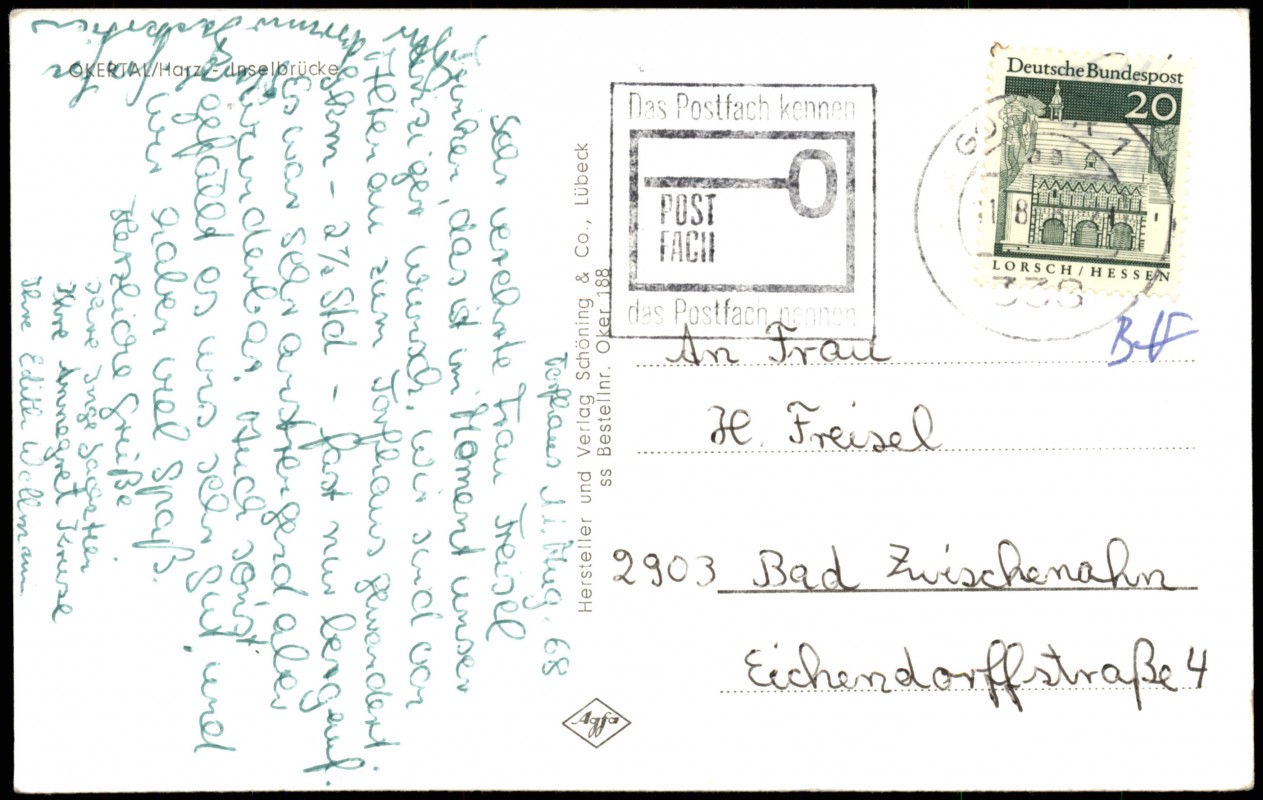 OKERTAL/Harz - Inselbrücke
Torfhaus 11. Aug. 68
Sehr verehrte Frau Freisel
Trinken, das ist im Moment unser
einziger Wunsch. Wir sind von
Altenau zum Torfhaus gewandert.
gestern - 2½ Std - fast nur bergauf.
Es war sehr anstrengend aber
wunderbar. Auch sonst
gefällt es uns sehr gut, und
wir haben viel Spaß.
Herzliche Grüße
Ihre Inge
Ihre Annegret Kruse
Ihre Edith Wellmann
Hersteller und Verlag Schöning & Co., Lübeck
ss Bestellnr. Oker 188
Agfa
Das Postfach kennen
POST
FACH
das Postfach nennen
Deutsche Bundespost
20
LORSCH/HESSEN
338
An Frau
H. Freisel
2903 Bad Zwischenahn
Eichendorffstraße 4